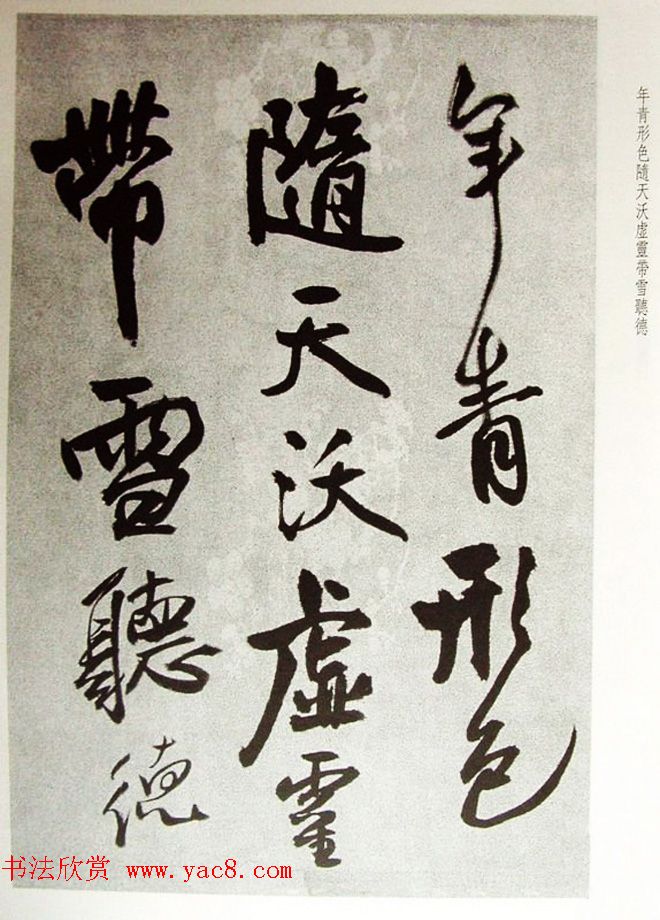 年青形色隨天沃虛靈帶雪聽德
年青形色
隨天沃虛靈
帶雪聽德
书法欣赏 www.yac8.com